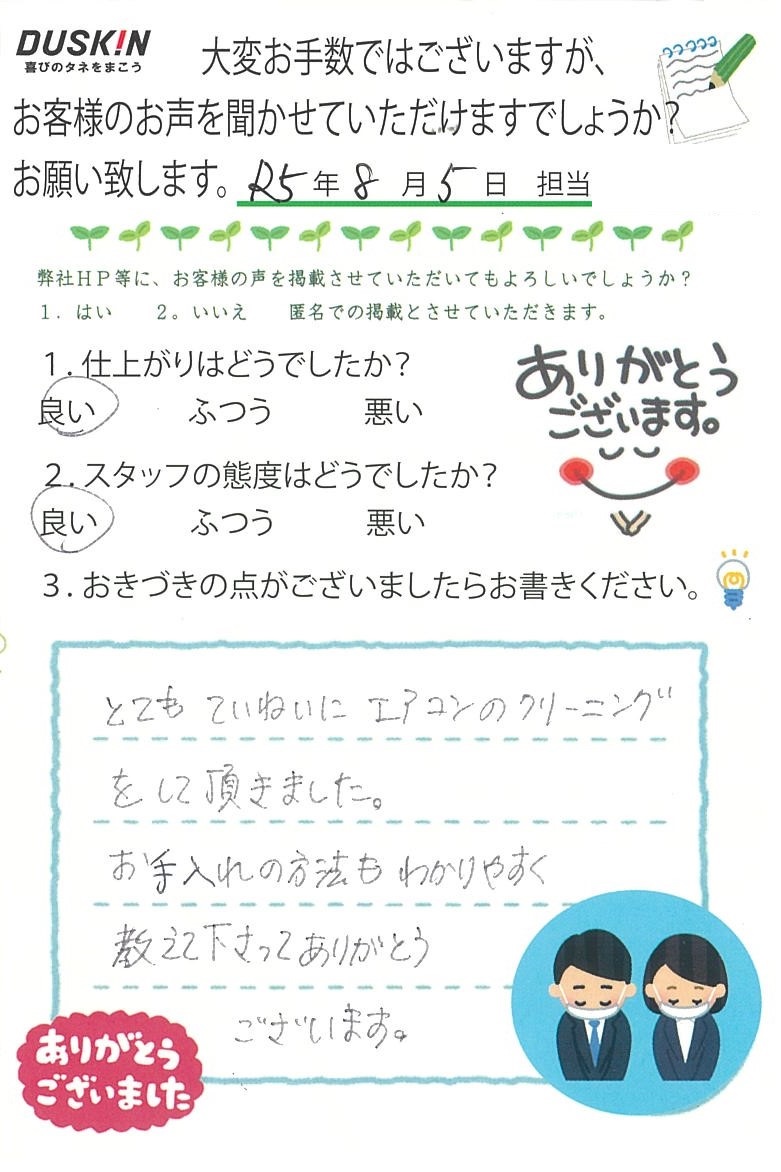 DUSK!N
喜びのタネをまこう
大変お手数ではございますが、
お客様のお声を聞かせていただけますでしょうか?
お願い致します。 R5年 8月 5日 担当
弊社HP等に、お客様の声を掲載させていただいてもよろしいでしょうか?
1. はい 2。いいえ 匿名での掲載とさせていただきます。
1.仕上がりはどうでしたか?
良い ふつう 悪い
ありがとう
ございます。
2.スタッフの態度はどうでしたか?
良い ふつう 悪い
3.おきづきの点がございましたらお書きください。
とても ていねいに エアコンのクリーニング
をして頂きました。
お手入れの方法も わかりやすく
教えて下さってありがとう
ございます。
ありがとう
ございました